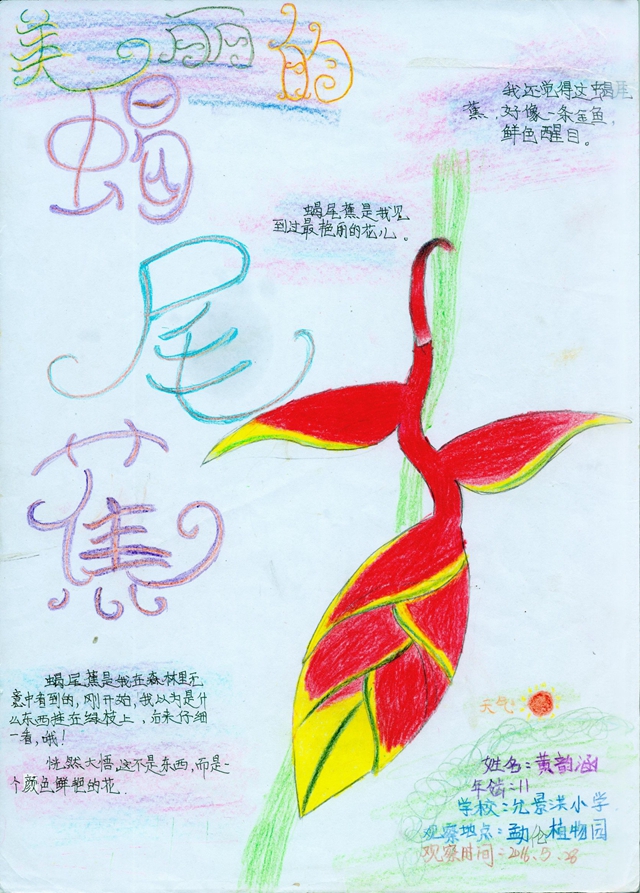 美丽的
蝎
尾
蕉
我还觉得这蝎尾
蕉,好像一条金鱼,
鲜色醒目。
蝎尾蕉是我见
到过最艳丽的花儿。
蝎尾蕉是我在森林里无
意中看到的,刚开始,我以为是什
么东西挂在绿枝上,后来仔细
一看,哦!
恍然大悟,这不是东西,而是一
个颜色鲜艳的花.
天气:
姓名:黄韵涵
年龄:11
学校:允景洪小学
观察地点:勐仑植物园
观察时间:2016.5.28